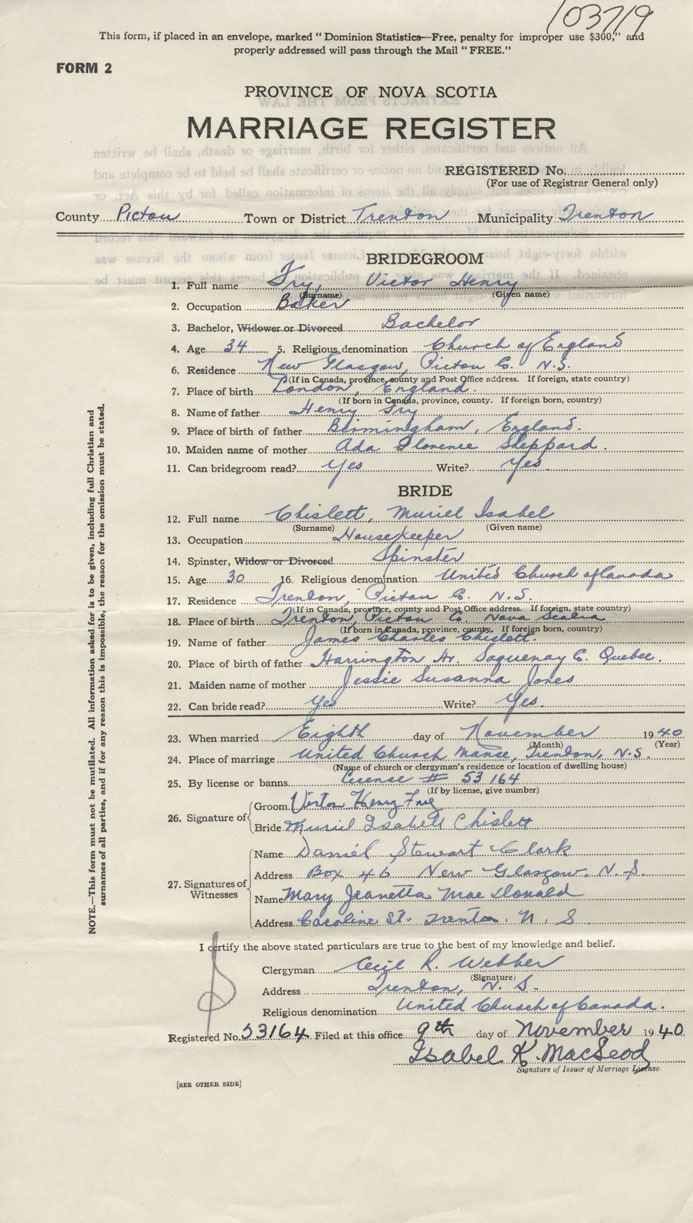 103719
This form, if placed in an envelope, marked "Dominion Statistics—Free, penalty for improper use $300," and
properly addressed will pass through the Mail "FREE."
FORM 2
PROVINCE OF NOVA SCOTIA
MARRIAGE REGISTER
REGISTERED No.
(For use of Registrar General only)
County Pictou Town or District Trenton Municipality Trenton
BRIDEGROOM
1. Full name Fry Victor Henry
(Surname) (Given name)
2. Occupation Baker
3. Bachelor, Widower or Divorced Bachelor
4. Age 34 5. Religious denomination Church of England
6. Residence New Glasgow, Pictou C. N.S.
(If in Canada, province, county and Post Office address. If foreign, state country)
7. Place of birth London, England.
(If born in Canada, province, county. If foreign born, country)
8. Name of father Henry Fry
9. Place of birth of father Birmingham, England.
10. Maiden name of mother Ada Florence Sheppard.
11. Can bridegroom read? Yes Write? Yes
BRIDE
12. Full name Chislett, Muriel Isabel
(Surname) (Given name)
13. Occupation Housekeeper
14. Spinster, Widow or Divorced Spinster
15. Age 30 16. Religious denomination United Church of Canada
17. Residence Trenton, Pictou C. N.S.
(If in Canada, province, county and Post Office address. If foreign, state country)
18. Place of birth Trenton, Pictou C. Nova Scotia
(If born in Canada, province, county. If foreign born, country)
19. Name of father James Charles Chislett.
20. Place of birth of father Harrington Hr. Saguenay C. Quebec.
21. Maiden name of mother Jessie Susanna Jones
22. Can bride read? Yes Write? Yes.
23. When married Eighth day of November 1940
(Month) (Year)
24. Place of marriage United Church Manse, Trenton, N.S.
(Name of church or clergyman's residence or location of dwelling house)
25. By license or banns License # 53164
(If by license, give number)
26. Signature of Groom Henry
Bride Muriel Isabell Chislett
27. Signatures of Witnesses
Name Daniel Stewart Clark
Address Box 46 New Glasgow, N.S.
Name Mary Jeanetta MacDonald
Address Caroline St. Trenton. N. S
I certify the above stated particulars are true to the best of my knowledge and belief.
Clergyman Cecil R. Webber
(Signature)
Address Trenton, N. S.
Religious denomination United Church of Canada.
Registered No. 53164 Filed at this office 9th day of November 1940
Isabel K. MacLeod
Signature of Issuer of Marriage License
[SEE OTHER SIDE]
NOTE.—This form must not be mutilated. All information asked for is to be given, including full Christian and
surnames of all parties, and if for any reason this is impossible, the reason for the omission must be stated.